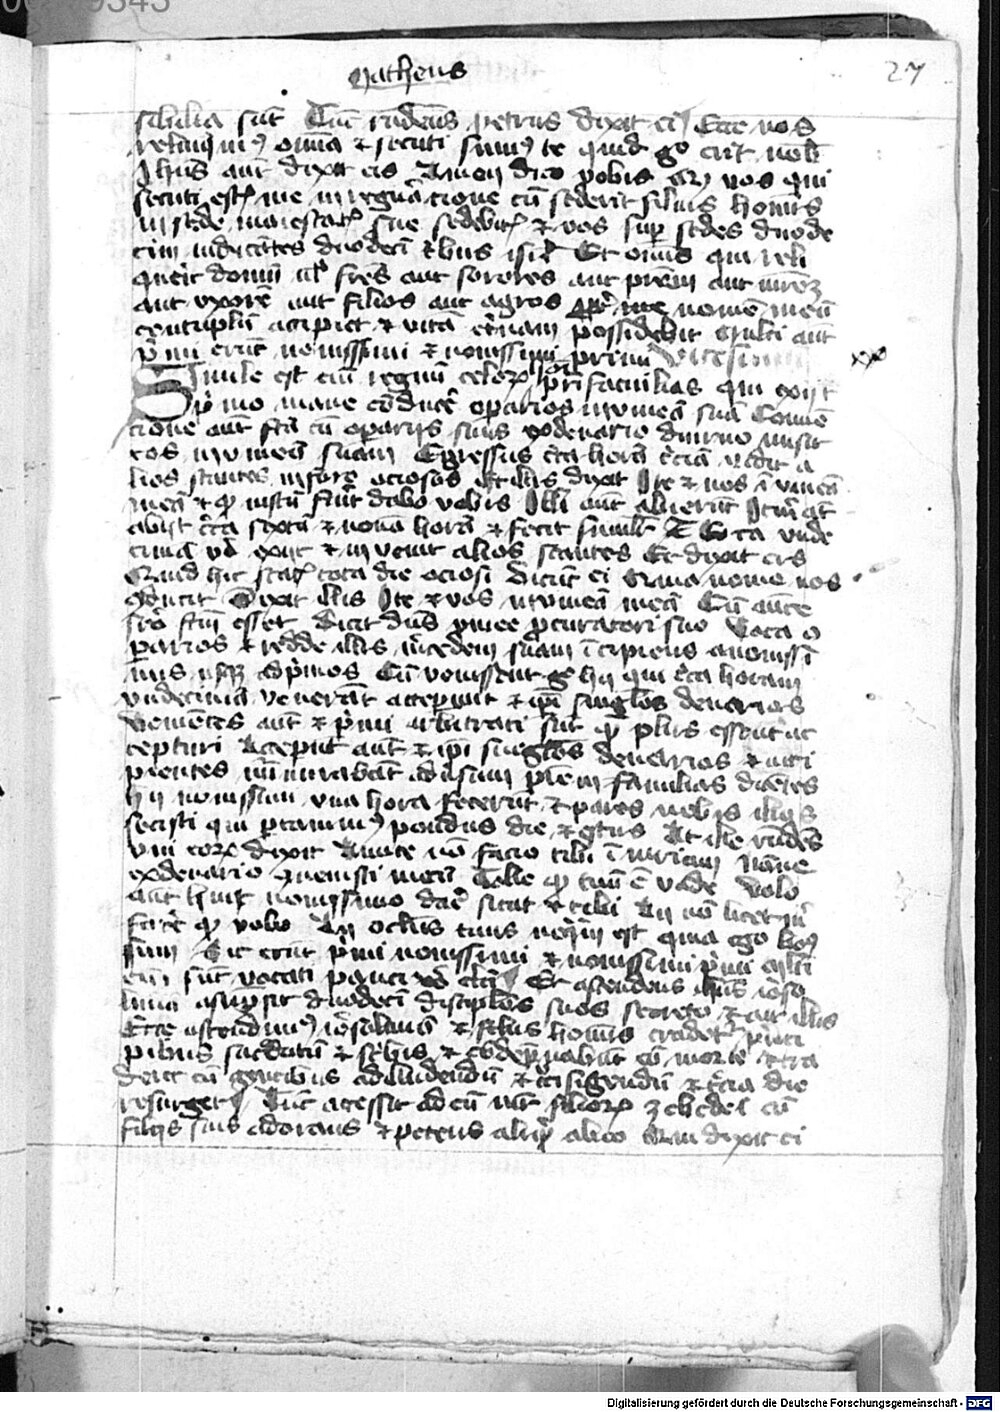 Matheus
27
sibilia sut Tuc rndens petrus dixit ei Ecce nos
relinqim9 omia & secuti sum9 te quid go erit nob
Ihus aut dixit eis Amen dico vobis q vos qui
secuti est me in regnacione cu sederit filius hois
in sede maiestat sue sedebit & vos sup sedes duode
cim iudicates duodeci tbus isrl Et omis qui reli
querit domu ul fres aut sorores aut prem aut mrem
aut uxore aut filios aut agros ppt nomen meu
centuplu accipiet & vita etnam possidebit Multi aut
pmi erut novissimi & novissimi primi Vicesimu
xx
Simile est eni regnu celor hoi pri familias qui exijt
pmo mane conduce operarios in vinea sua Conven
cione aut fta cu operarijs suis ex denario diurno misit
eos in vinea suam Egressus circa hora tcia vidit a
lios stantes in foro ociosos Et illis dixit Ite & vos i vinea
mea & qd iustu fuit dabo vobis Illi aut abierut Itm at
abijt circa sexta & nona hora & fecit simili Circa unde
cima vo exijt & invenit alios stantes Et dixit eis
Quid hic stat tota die ociosi Dicut ei Quia nemo nos
conduxit Dixit illis Ite & vos in vinea mea Cu aute
sero ftm esset Dicit dns vinee procuratori suo Voca o
perarios & redde illis mcedem suam incipiens a novissi
mis usq ad pmos Cu venissent go hij qui circa horam
undecima venerat acceperut & ipi singlos denarios
Venietes aut & pmi arbitrati sut q plus essent ac
cepturi Acceperut aut & ipi singlos denarios & acci
pientes murmurabat adversum prem familias dicetes
hij novissimi una hora fecerut & pares nobis illos
fecisti qui portavim9 pondus diei & estus At ille rndens
uni eor dixit Amice no facio tibi iniuriam Nonne
ex denario convenisti mecu Tolle qd tuu e vade Volo
aut huic novissimo dare sicut & tibi An no licet m
facere qd volo An oculus tuus neqm est quia ego bon9
sum Sic erut pmi novissimi & novissimi pmi Multi
eni sut vocati pauci vo elcti Et ascendens ihus iero
lima assupsit duodeci disciplos suos secreto & ait illis
Ecce ascendim9 ierosolima & filius hois tradet pnci
pibus sacdotu & scribis & codepnabut eu morte & tra
dent eu gentibus ad illudendu & crucifigendu & tcia die
resurget Tuc accessit ad eu mat filior zebedei cu
filijs suis adorans & petens aliqd ab eo Qui dixit ei
Digitalisierung gefördert durch die Deutsche Forschungsgemeinschaft - DFG